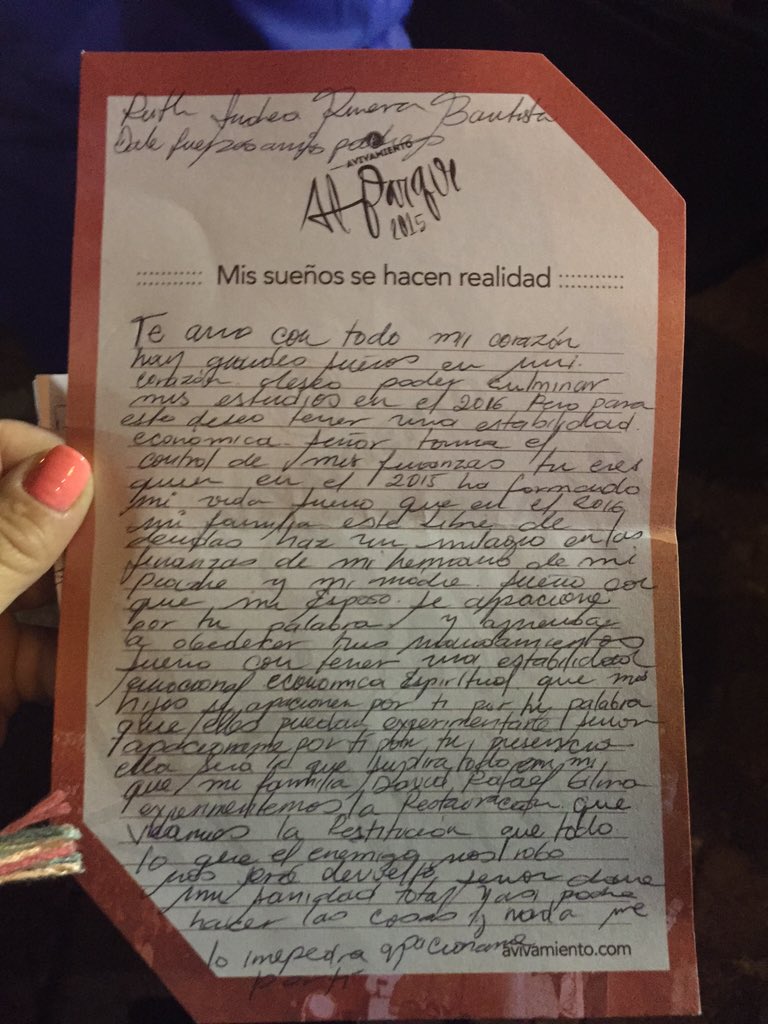 Ruth Andrea Rivera Bautista
Dale fuerzas a mis padres
AVIVAMIENTO
Al Parque
2015
Mis sueños se hacen realidad
Te amo con todo mi corazón
hay grandes sueños en mi
corazón deseo poder culminar
mis estudios en el 2016 Pero para
esto deseo tener una estabilidad
economica. Señor toma el
control de mis finanzas tu eres
quien en el 2015 ha formado
mi vida sueño que en el 2016
mi familia este libre de
deudas haz un milagro en las
finanzas de mi hermano de mi
padre y mi madre. Sueño con
que mi Esposo. Se apacione
por tu palabra y aprenda
a obedecer tus mandamientos
Sueño con tener una estabilidad
emocional economica Espiritual que mis
hijos se apacionen por ti por tu palabra
que ellos puedan experimentarte Señor
apacioname por ti por tu presencia
ella sea la que supla todo en mi
que mi familia David Rafael
experimentemos la Restauración que
veamos la Restitución que todo
lo que el enemigo nos robo
nos sera devuelto, Señor dame
mi sanidad total y asi podre
hacer las cosas y nada me
lo impedira apacioname
por ti
avivamiento.com